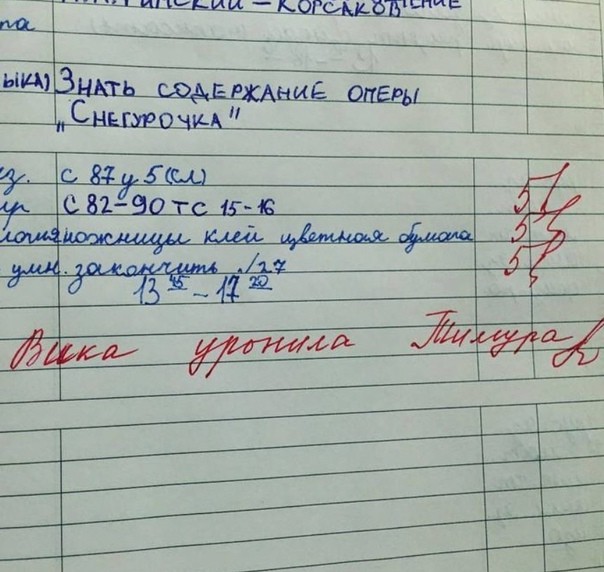 РИМСКИЙ – КОРСАКОВ ЕНИЕ
ЫКА) ЗНАТЬ СОДЕРЖАНИЕ ОПЕРЫ
„СНЕГУРОЧКА"
С 87 у 5 (сл) 5
С 82-90 ТС 15-16 5
логия ножницы клей цветная бумага 5
умн. закончить ./27
13 45 – 17 20
Вика уронила Тимура